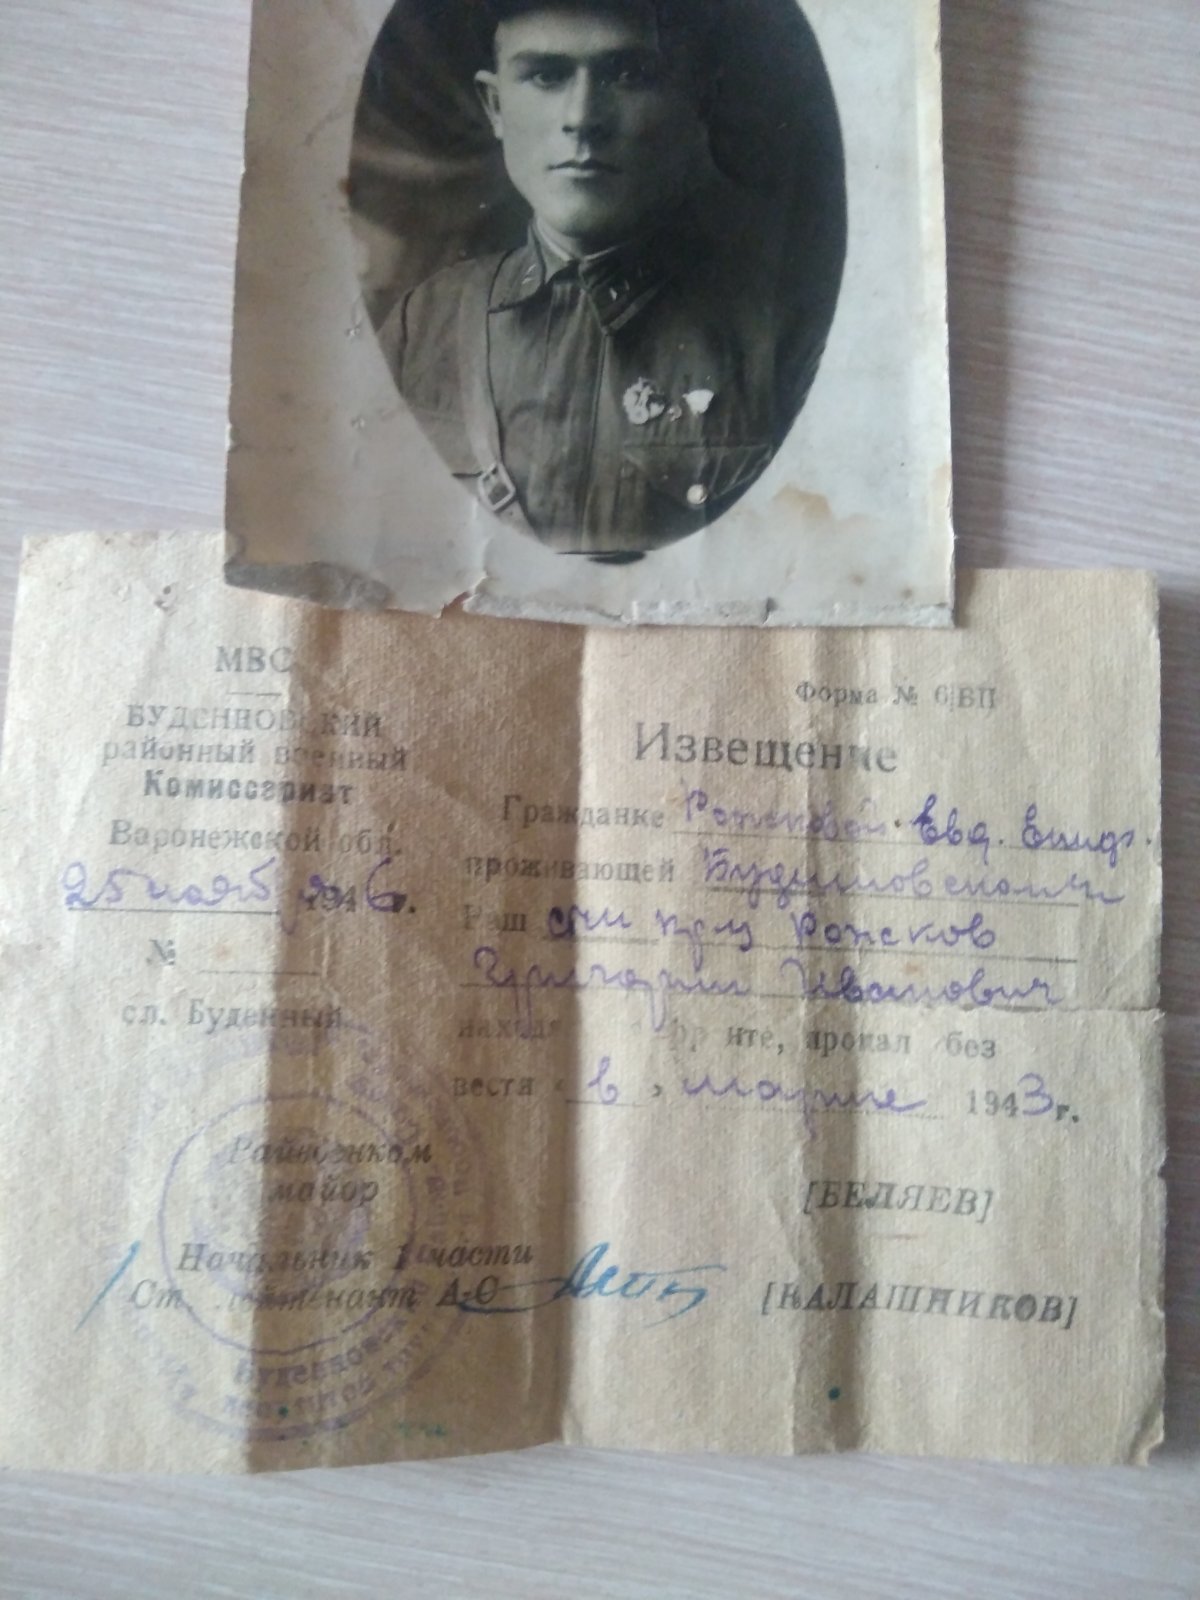 МВС
БУДЕННОВСКИЙ
районный военный
Комиссариат
Воронежской обл.
25 нояб 1946 г.
№
сл. Буденный
Форма № 6/ВП
Извещение
Гражданке Рожсковой Евд. Епиф.
проживающей
Ваш Рожсков
Григорий Иванович
находясь на фронте, пропал без
вести " в " марте 1943 г.
Райвоенком
майор [БЕЛЯЕВ]
Начальник 1 части
Ст. лейтенант А-С [КАЛАШНИКОВ]